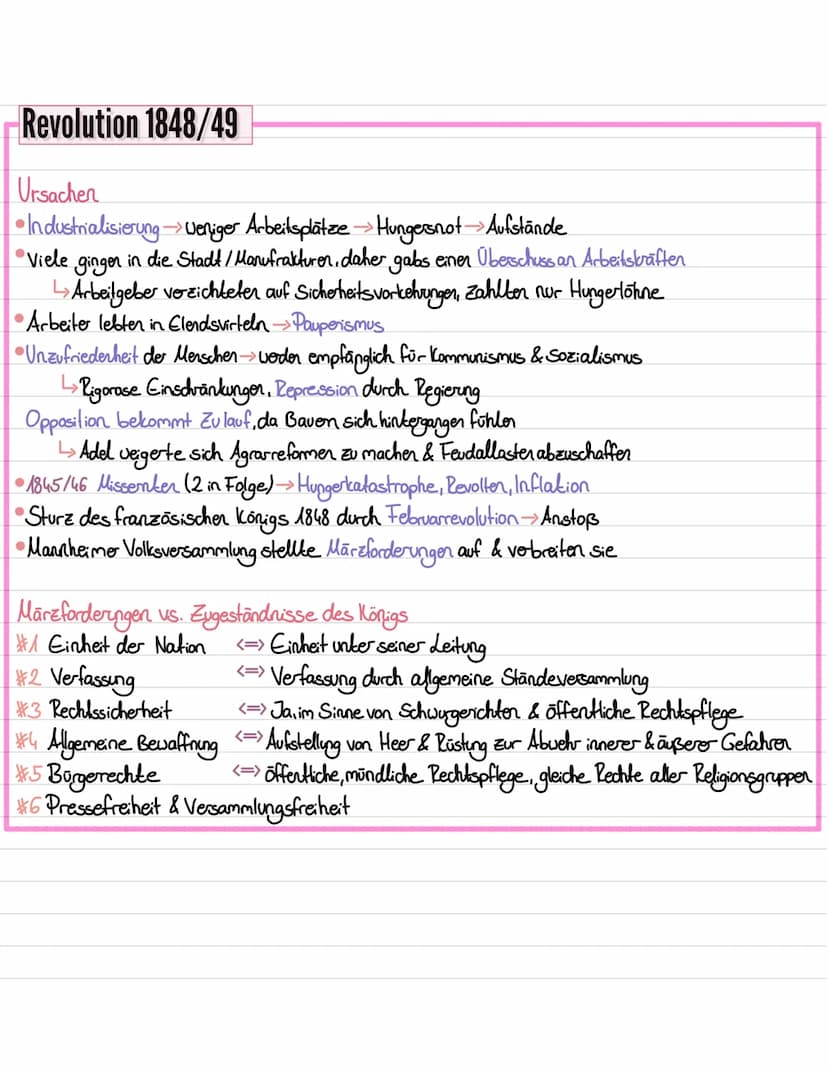 Revolution 1848/49
Ursachen
• Industrialisierung → weniger Arbeitsplätze → Hungersnot → Aufstände
• Viele gingen in die Stadt / Manufrakturen, daher gabs einen Überschuss an Arbeitskräften
↳ Arbeitgeber verzichteten auf Sicherheitsvorkehrungen, zahlten nur Hungerlöhne
• Arbeiter lebten in Elendsvirteln → Pauperismus
• Unzufriedenheit der Menschen → werden empfänglich für Kommunismus & Sozialismus
↳ Rigorose Einschränkungen, Repression durch Regierung
Opposition bekommt Zulauf, da Bauern sich hintergangen fühlen
↳ Adel weigerte sich Agrarreformen zu machen & Feudallasten abzuschaffen
• 1845/46 Missernten (2 in Folge) → Hungerkatastrophe, Revolten, Inflation
• Sturz des französischen Königs 1848 durch Februarrevolution → Anstoß
• Mannheimer Volksversammlung stellte Märzforderungen auf & verbreiten sie
Märzforderngen vs. Zugeständnisse des Königs
#1 Einheit der Nation <=> Einheit unter seiner Leitung
#2 Verfassung <=> Verfassung durch allgemeine Ständeversammlung
#3 Rechtssicherheit <=> Ja, im Sinne von Schwurgerichten & öffentliche Rechtspflege
#4 Allgemeine Bewaffnung <=> Aufstellung von Heer & Rüstung zur Abwehr innerer & äußerer Gefahren
#5 Bürgerrechte <=> öffentliche, mündliche Rechtspflege, gleiche Rechte aller Religionsgruppen
#6 Pressefreiheit & Versammlungsfreiheit